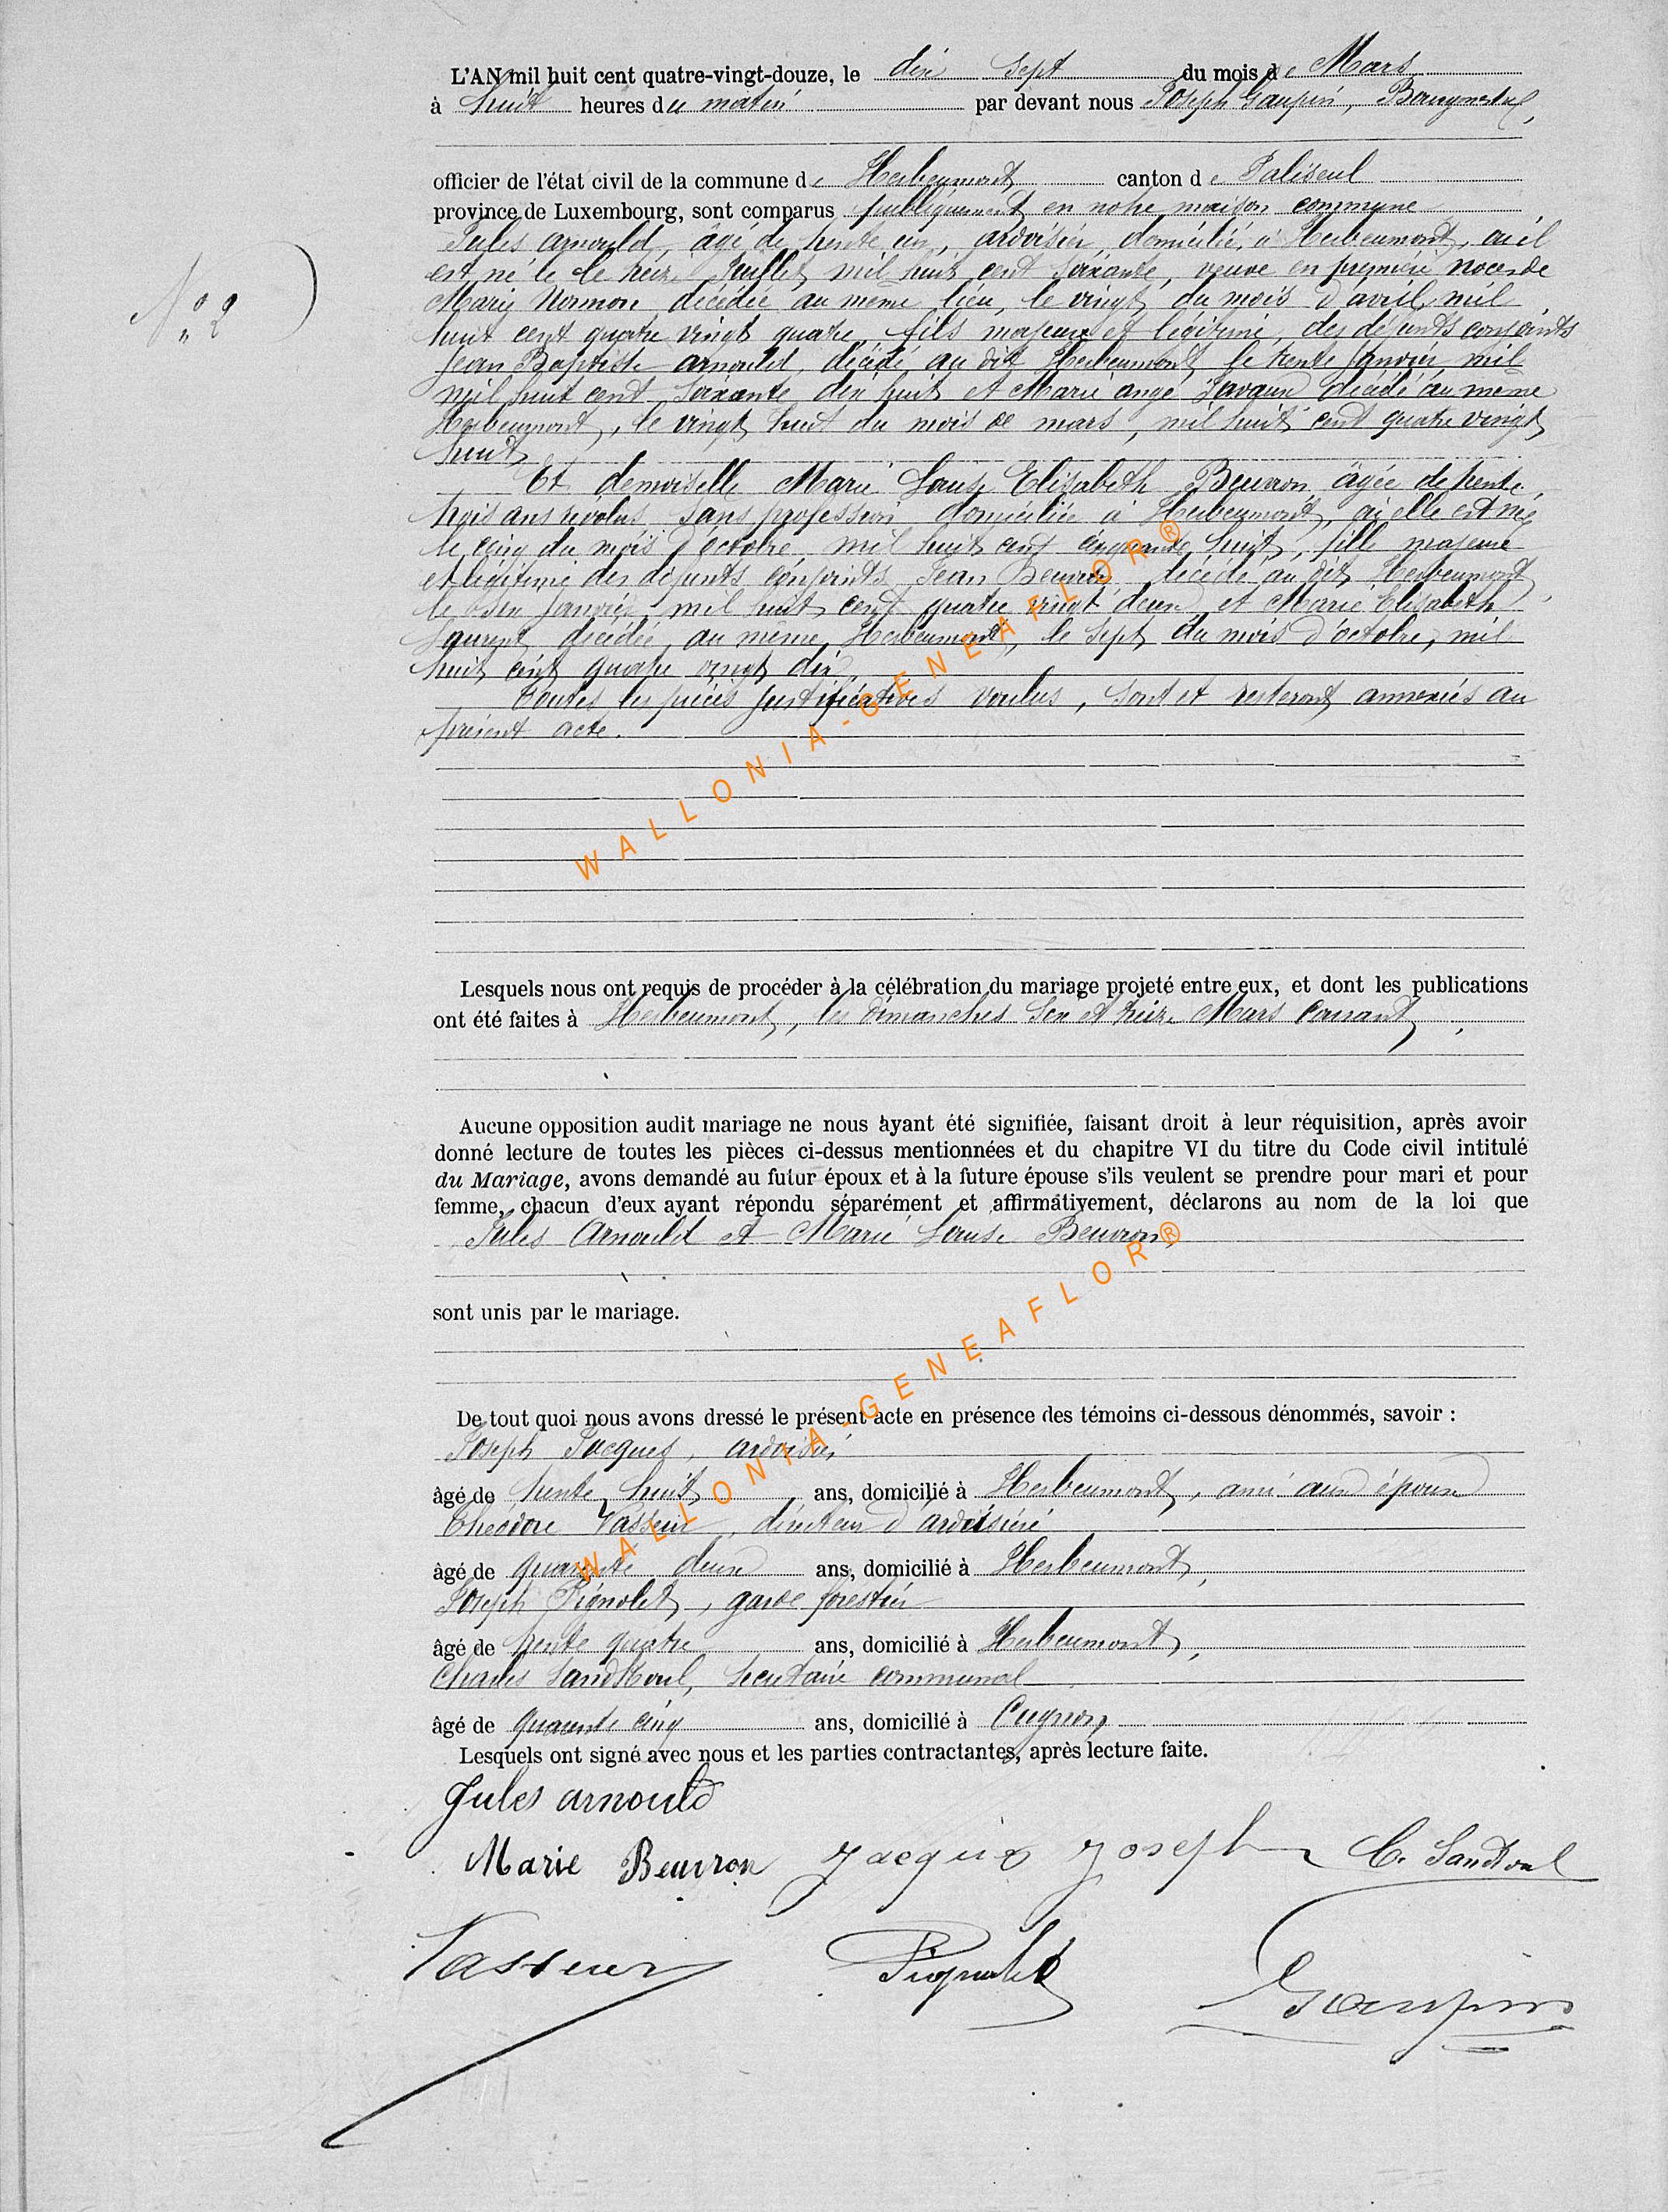 L'AN mil huit cent quatre-vingt-douze, le dix sept du mois de Mars
à huit heures du matin par devant nous Joseph Gaupin, Bourgmestre,
officier de l'état civil de la commune de Herbeumont canton de Paliseul
province de Luxembourg, sont comparus publiquement en notre maison commune
N° 2
Jules Arnould, âgé de trente un, ardoisier, domicilié à Herbeumont, où il
est né le le treize Juillet mil huit cent soixante, veuve en première noces de
Marie Normon décédée au même lieu, le vingt du mois d'avril mil
huit cent quatre vingt quatre, fils majeur et légitime, des défunts conjoints
Jean Baptiste Arnould, décédé au dit Herbeumont le trente janvier mil
mil huit cent soixante dix huit et Marie ange décédé au même
Herbeumont, le vingt huit du mois de mars, mil huit cent quatre vingt
huit
Et demoiselle Marie Louise Elisabeth Beuvron, âgée de trente
trois ans révolus sans profession domiciliée à Herbeumont, où elle est née
le cinq du mois d'octobre mil huit cent cinquante huit, fille majeure
et légitime des défunts conjoints Jean Beuvron décédé au dit Herbeumont
le janvier mil huit cent quatre vingt deux et Marie Elisabeth
Laurent décédée au même Herbeumont, le sept du mois d'octobre, mil
huit cent quatre vingt dix
Toutes les pièces justificatives voulus, sont et resteront annexées au
présent acte.
Lesquels nous ont requis de procéder à la célébration du mariage projeté entre eux, et dont les publications
ont été faites à Herbeumont, les dimanches six et treize Mars courant,
Aucune opposition audit mariage ne nous ayant été signifiée, faisant droit à leur réquisition, après avoir
donné lecture de toutes les pièces ci-dessus mentionnées et du chapitre VI du titre du Code civil intitulé
du Mariage, avons demandé au futur époux et à la future épouse s'ils veulent se prendre pour mari et pour
femme, chacun d'eux ayant répondu séparément et affirmativement, déclarons au nom de la loi que
Jules Arnould et Marie Louise Beuvron,
sont unis par le mariage.
De tout quoi nous avons dressé le présent acte en présence des témoins ci-dessous dénommés, savoir :
Joseph Jacques, ardoisier
âgé de trente huit ans, domicilié à Herbeumont, ami aux époux
Théodore Vasseur, directeur d'ardoisière
âgé de quarante deux ans, domicilié à Herbeumont,
Joseph Pignolet, garde forestier
âgé de trente quatre ans, domicilié à Herbeumont,
Charles Sandkoul, secrétaire communal
âgé de quarante cinq ans, domicilié à Cugnon,
Lesquels ont signé avec nous et les parties contractantes, après lecture faite.
Jules arnould
Marie Beuvron Jacquis Joseph C. Sandkoul
Vasseur Pignolet Gaupin
WALLONIA-GENEAFLOR®
WALLONIA-GENEAFLOR®